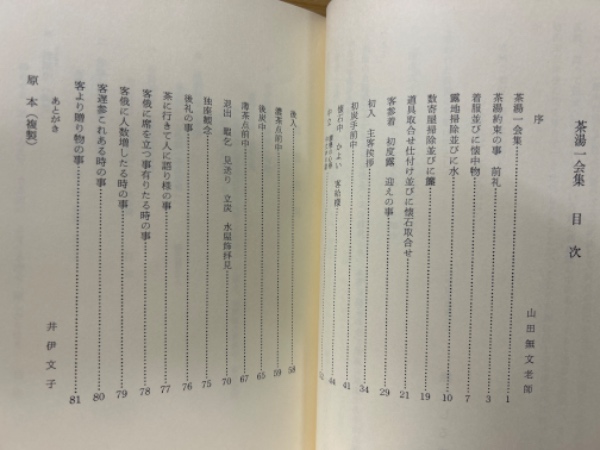 茶湯一会集 目次
序 山田無文老師
茶湯一会集 1
茶湯約束の事 前礼 3
着服並びに懐中物 7
露地掃除並びに水 10
数寄屋掃除並びに簾 19
道具取合せ仕付け並びに懐石取合せ 21
客参着 初度露 迎えの事 29
初入 主客挨拶 34
初炭手前中 41
懐石中 かよい 客助様 44
後入 58
濃茶点前中 59
後炭中 65
薄茶点前中 67
退出 暇乞 見送り 立炭 水屋飾拝見 70
独座観念 75
後礼の事 76
茶に行きて人に語り様の事 77
客俄に席を立つ事有りたる時の事 78
客俄に人数増したる時の事 79
客遅参これある時の事 80
客より贈り物の事 81
あとがき 井伊文子
原本(複製)